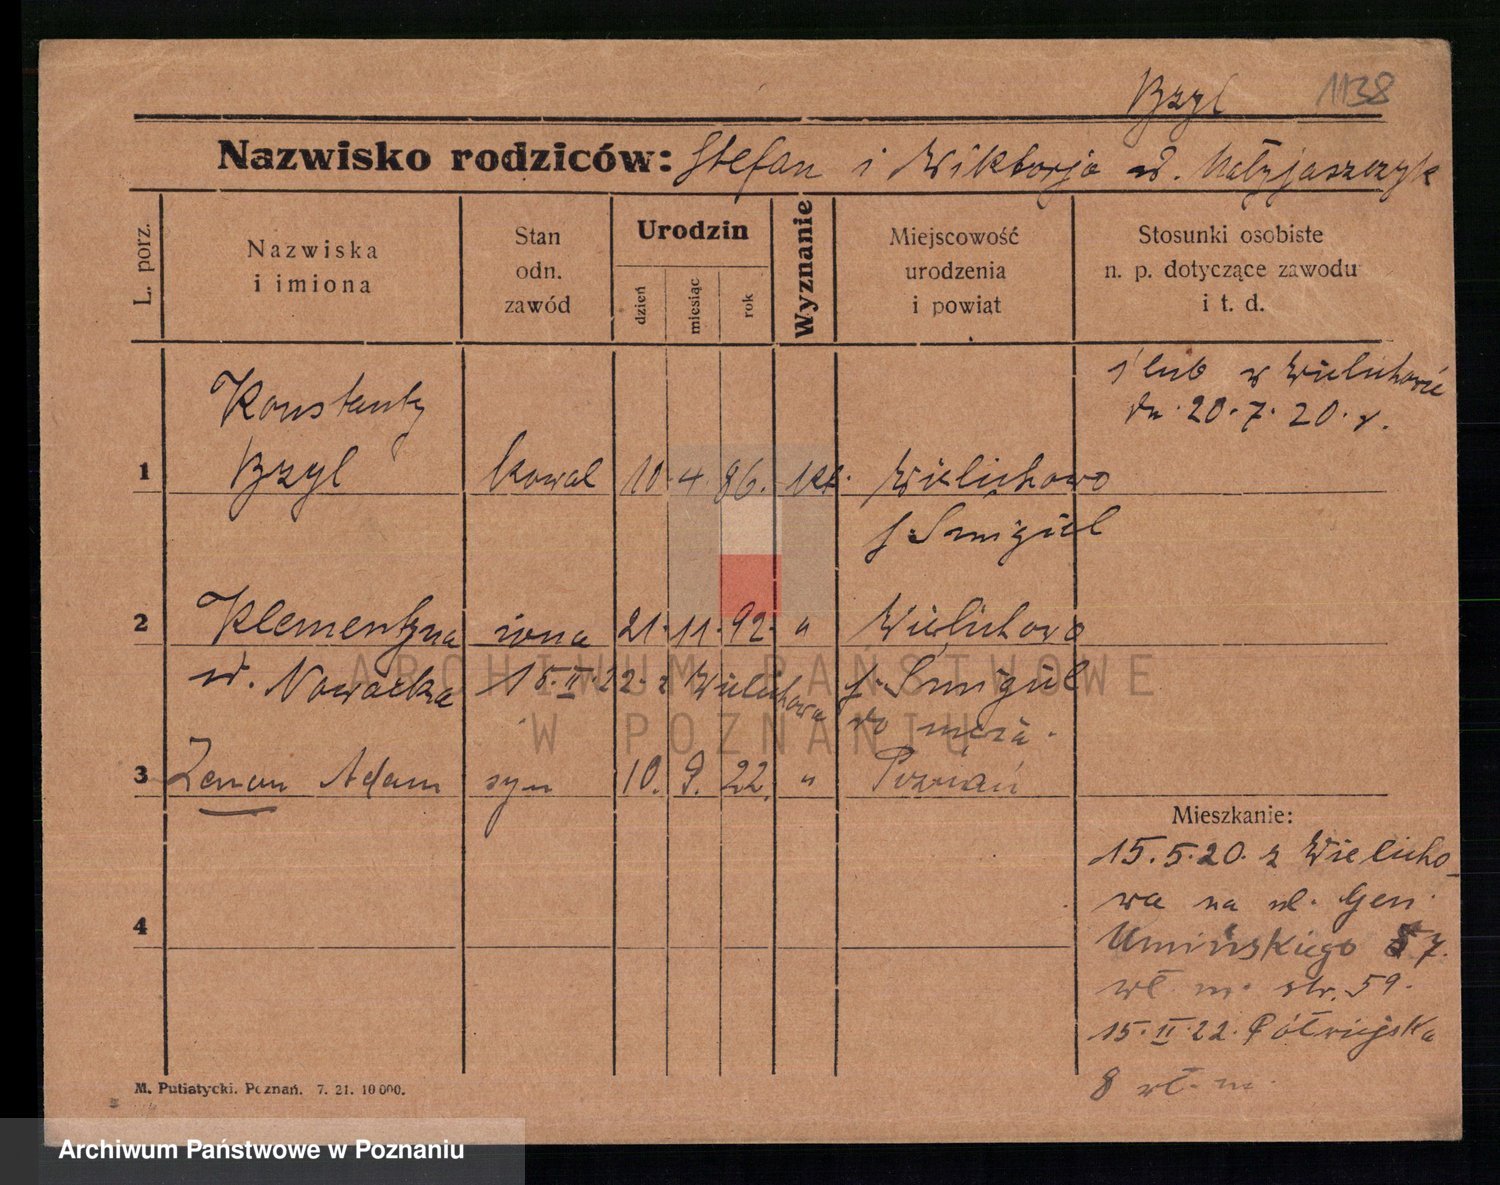 Bzyl 1138
Nazwisko rodziców: Stefan i Wiktorja d. Matyjaszczyk
L. porz.
Nazwiska
i imiona
Stan
odn.
zawód
Urodzin
dzień
miesiąc
rok
Wyznanie
Miejscowość
urodzenia
i powiat
Stosunki osobiste
n. p. dotyczące zawodu
i t. d.
ślub w Wielichowie
dn. 20.7.20 r.
Konstanty
1 Bzyl kowal 10. 4. 86. kt. Wielichowo
p. Śmigiel
2 Klementyna żona 21. 11. 92. " Wielichowo
d. Nowacka 15.II.22. z Wielichowa p. Śmigiel
do męża.
3 Zenon Adam syn 10. 9. 22. " Poznań
4
Mieszkanie:
15.5.20. z Wielicho-
wa na ul. Gen.
Umińskiego 7.
wł. m. str. 59.
15.II.22. Półwiejska
8 wł. m.
M. Putiatycki. Poznań. 7. 21. 10 000.
ARCHIWUM PAŃSTWOWE
W POZNANIU
Archiwum Państwowe w Poznaniu